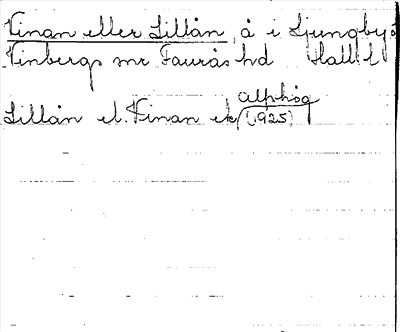 Vinan eller Lillån, å i Ljungby o
Vinbergs snr Faurås hd Hall l
alphög
Lillån el. Vinan ek (1925)